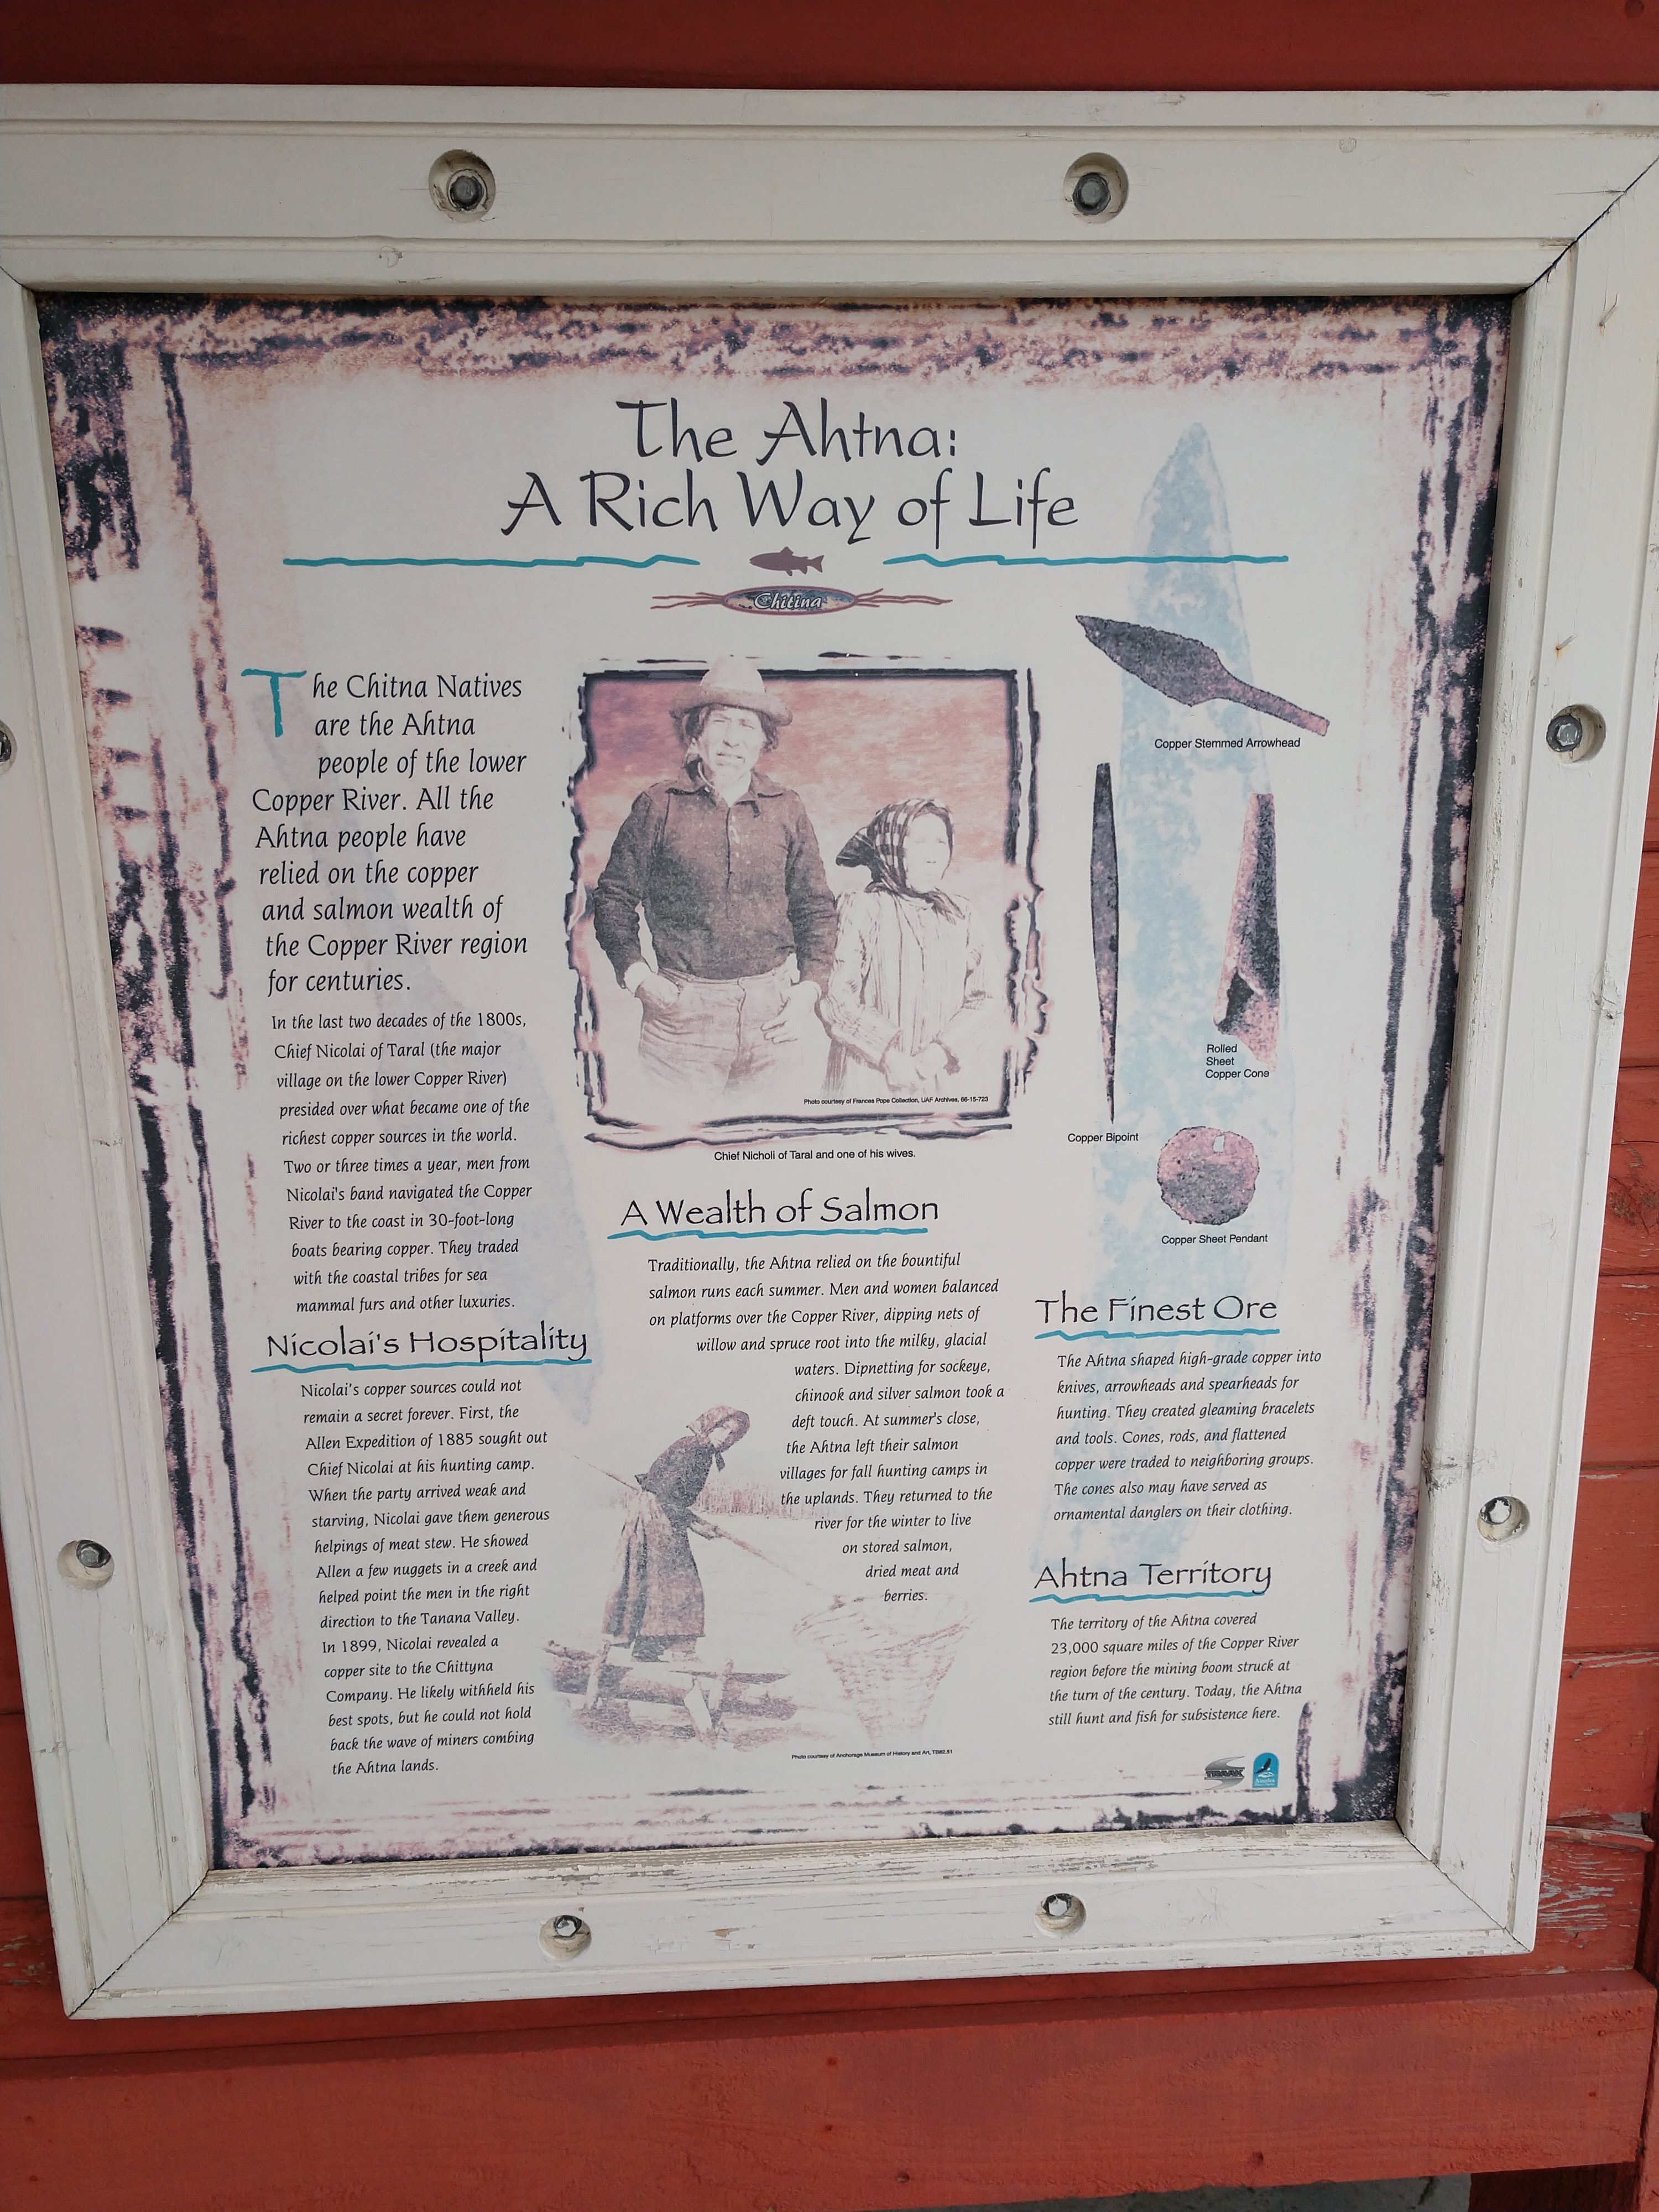 The Ahtna:
A Rich Way of Life
Chitina
The Chitna Natives
are the Ahtna
people of the lower
Copper River. All the
Ahtna people have
relied on the copper
and salmon wealth of
the Copper River region
for centuries.
In the last two decades of the 1800s,
Chief Nicolai of Taral (the major
village on the lower Copper River)
presided over what became one of the
richest copper sources in the world.
Two or three times a year, men from
Nicolai's band navigated the Copper
River to the coast in 30-foot-long
boats bearing copper. They traded
with the coastal tribes for sea
mammal furs and other luxuries.
Nicolai's Hospitality
Nicolai's copper sources could not
remain a secret forever. First, the
Allen Expedition of 1885 sought out
Chief Nicolai at his hunting camp.
When the party arrived weak and
starving, Nicolai gave them generous
helpings of meat stew. He showed
Allen a few nuggets in a creek and
helped point the men in the right
direction to the Tanana Valley.
In 1899, Nicolai revealed a
copper site to the Chittyna
Company. He likely withheld his
best spots, but he could not hold
back the wave of miners combing
the Ahtna lands.
Photo courtesy of Frances Pope Collection, UAF Archives, 66-15-723
Chief Nicholi of Taral and one of his wives.
A Wealth of Salmon
Traditionally, the Ahtna relied on the bountiful
salmon runs each summer. Men and women balanced
on platforms over the Copper River, dipping nets of
willow and spruce root into the milky, glacial
waters. Dipnetting for sockeye,
chinook and silver salmon took a
deft touch. At summer's close,
the Ahtna left their salmon
villages for fall hunting camps in
the uplands. They returned to the
river for the winter to live
on stored salmon,
dried meat and
berries.
Photo courtesy of Anchorage Museum of History and Art,
Copper Stemmed Arrowhead
Rolled
Sheet
Copper Cone
Copper Bipoint
Copper Sheet Pendant
The Finest Ore
The Ahtna shaped high-grade copper into
knives, arrowheads and spearheads for
hunting. They created gleaming bracelets
and tools. Cones, rods, and flattened
copper were traded to neighboring groups.
The cones also may have served as
ornamental danglers on their clothing.
Ahtna Territory
The territory of the Ahtna covered
23,000 square miles of the Copper River
region before the mining boom struck at
the turn of the century. Today, the Ahtna
still hunt and fish for subsistence here.
TRAAK